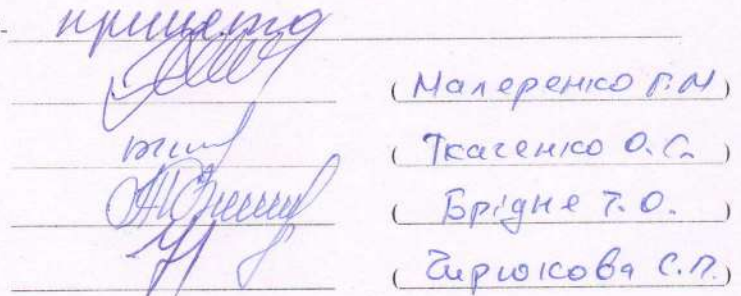 принято
(Малеренко Г.М)
(Ткаченко О.С.)
(Брідне Т.О.)
(Чирюкова С.П.)